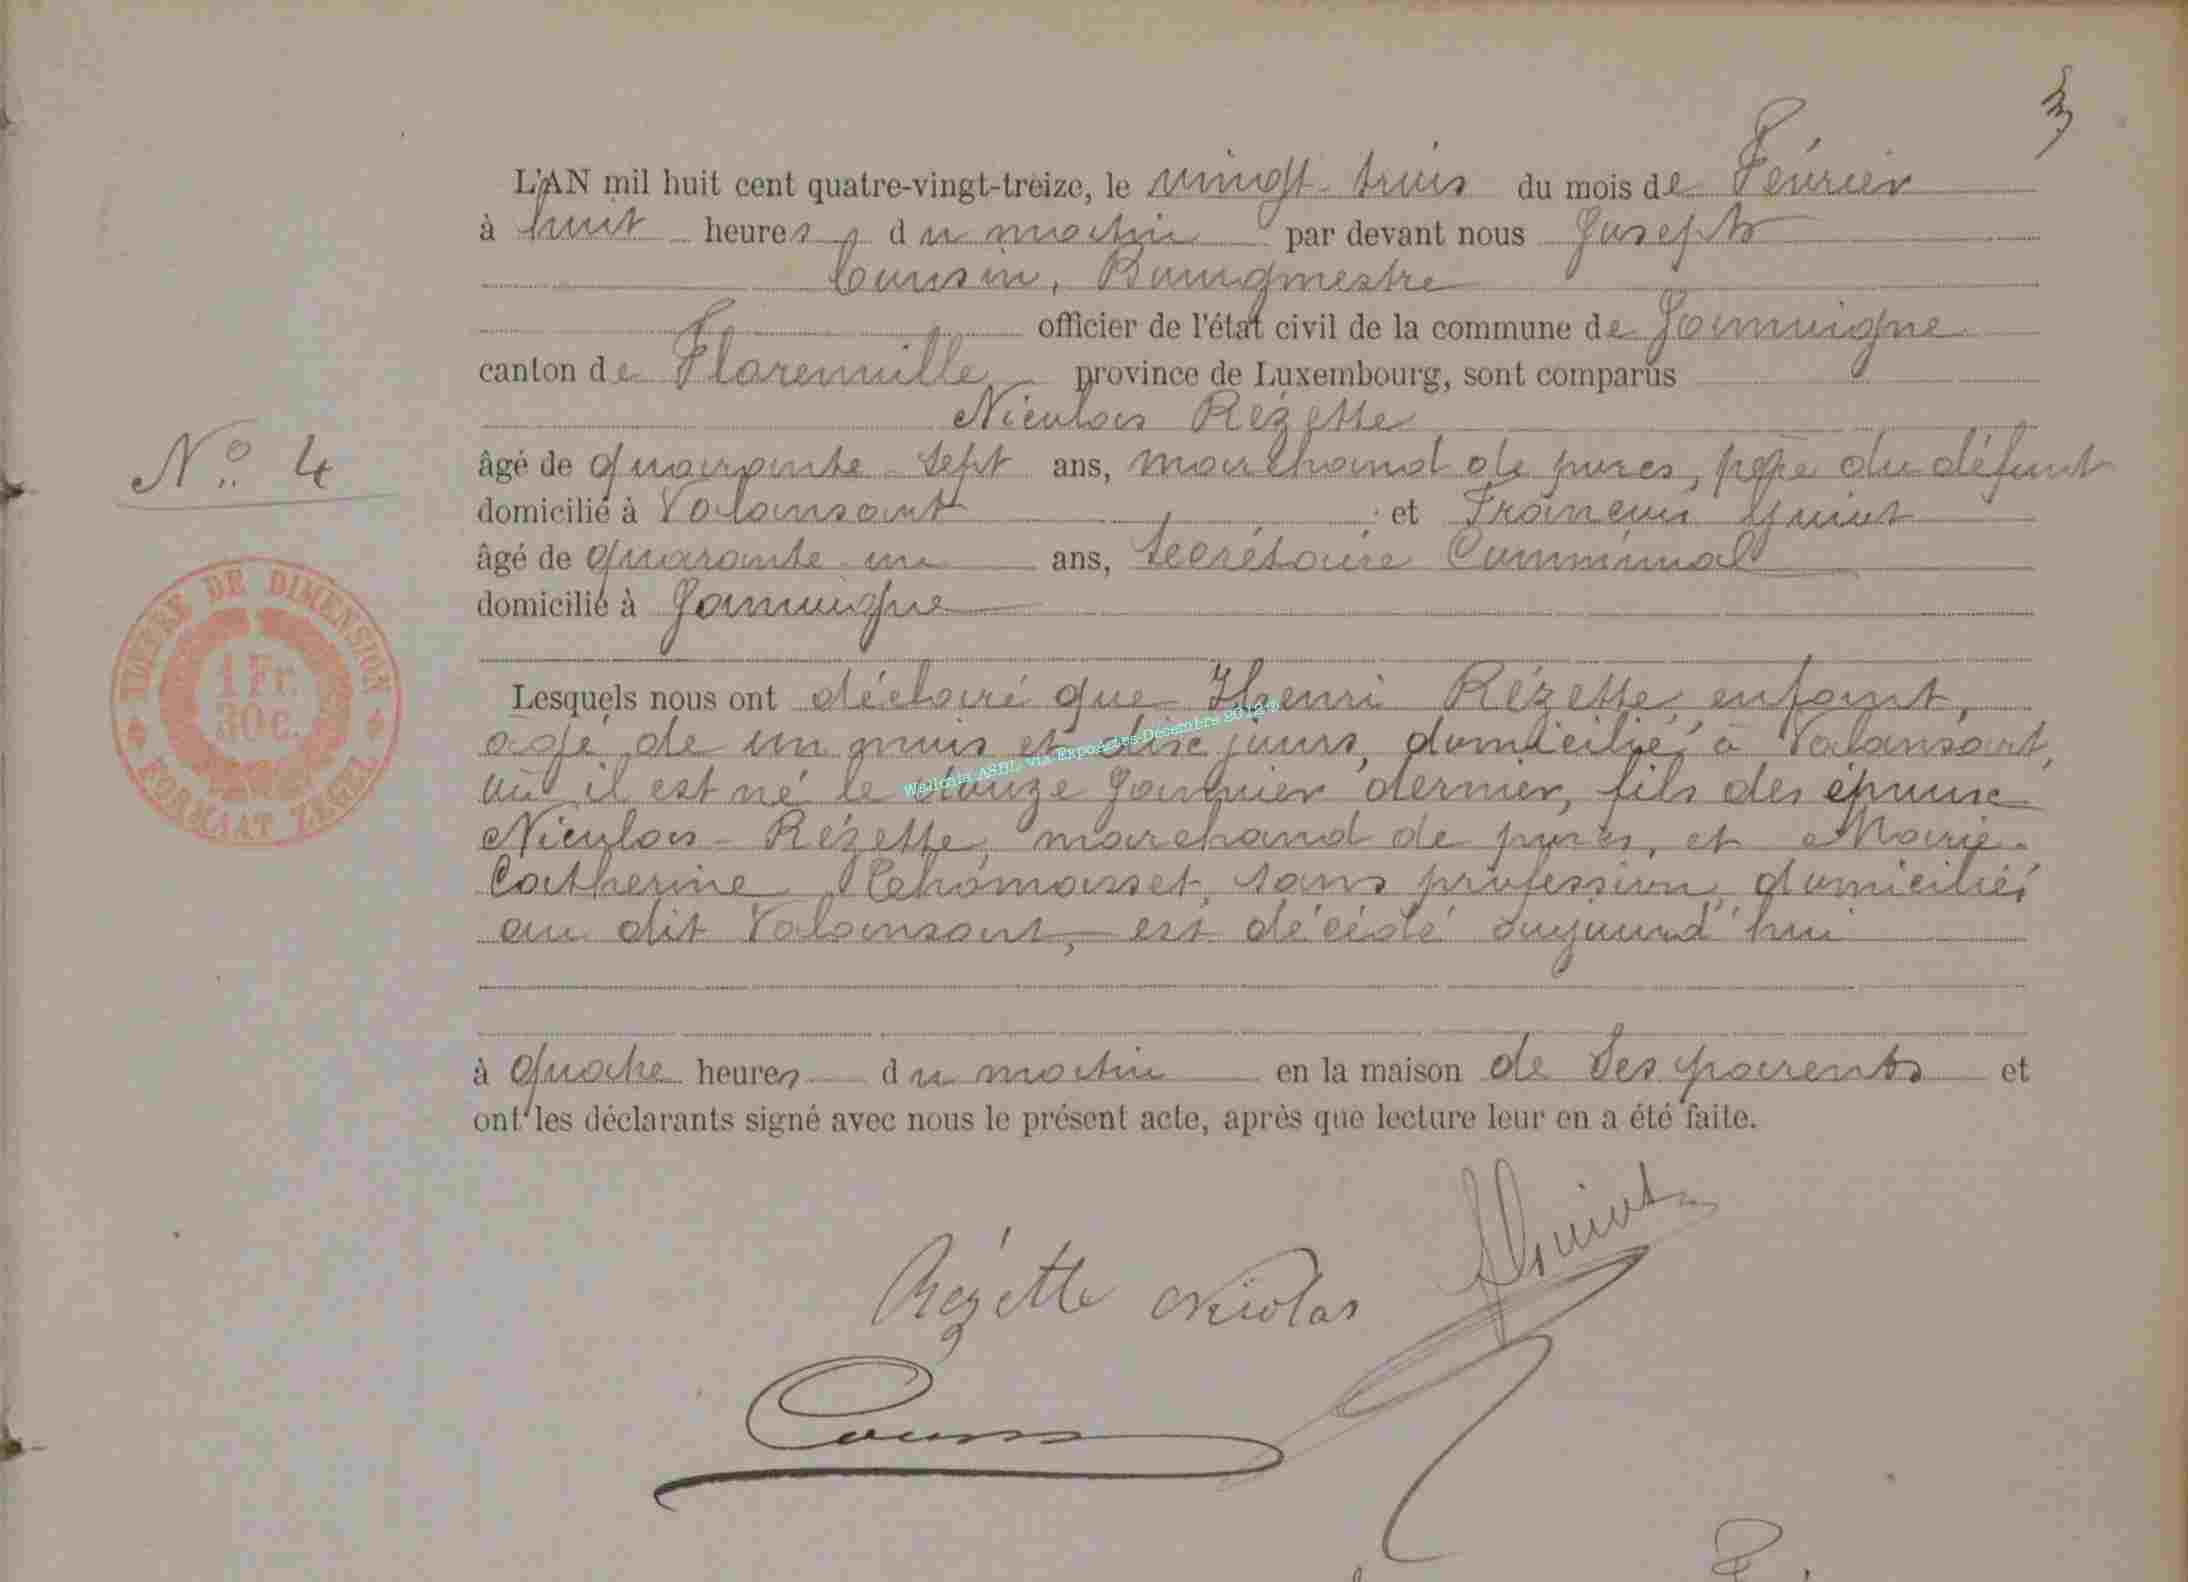 3
L'AN mil huit cent quatre-vingt-treize, le vingt-trois du mois de Février
à huit heures du matin par devant nous Joseph
Cousin, Bourgmestre
officier de l'état civil de la commune de Jamoigne
canton de Florenville province de Luxembourg, sont comparus
Nicolas Rézette
N° 4
âgé de quarante-sept ans, marchand de porcs, père du défunt
domicilié à Valansart et François Guiot
âgé de quarante-un ans, secrétaire Communal
domicilié à Jamoigne
TIMBRE DE DIMENSION
1 Fr.
30 c.
FORMAAT ZEGEL
Lesquels nous ont déclaré que Henri Rézette, enfant,
âgé de un mois et dix jours, domicilié à Valansart,
Wallonia ASBL, via ExpoActes-Décembre 2012 ©
où il est né le douze Janvier dernier, fils des époux
Nicolas Rézette, marchand de porcs, et Marie-
Catherine sans profession, domiciliés
au dit Valansart, est décédé aujourd'hui
à quatre heures du matin en la maison de ses parents et
ont les déclarants signé avec nous le présent acte, après que lecture leur en a été faite.
Guiot
Rézette Nicolas
Cousin